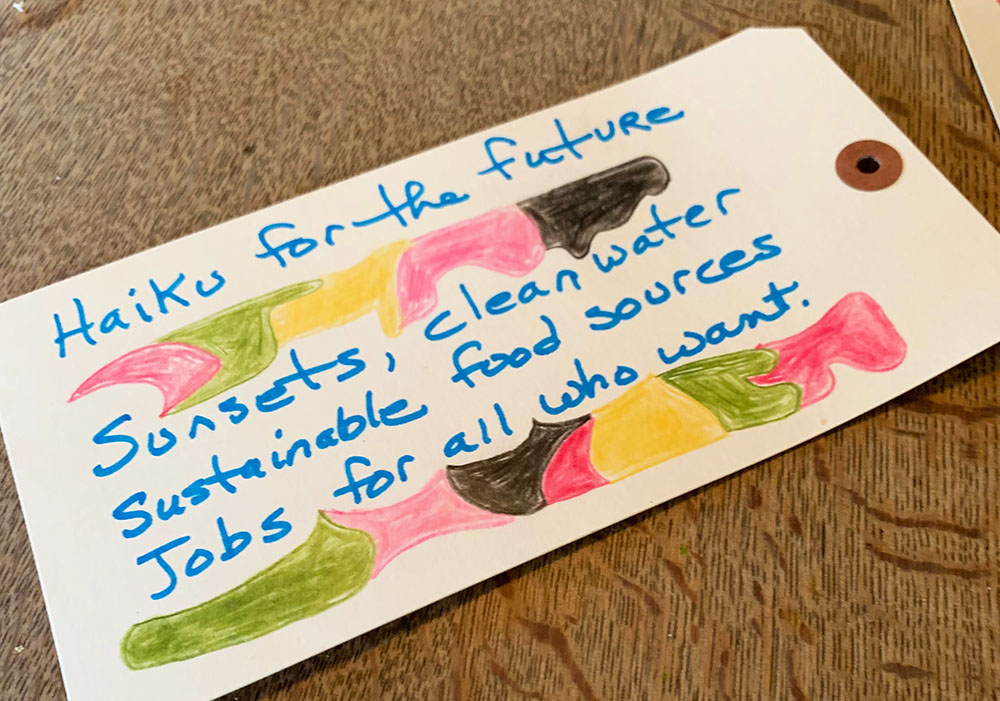 Haiku for the future
Sunsets, clean water
Sustainable food sources
Jobs for all who want.